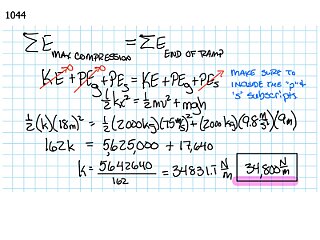 1044
ΣE MAX COMPRESSION = ΣE END OF RAMP
KE + PEg + PEs = KE + PEg + PEs
MAKE SURE TO INCLUDE THE "g" & "s" subscripts
½kx² = ½mv² + mgh
½(k)(18m)² = ½(2000kg)(75 m/s)² + (2000kg)(9.8 m/s²)(9m)
162k = 5,625,000 + 17,640
k = 5642640 / 162 = 34831.1 N/m
34,800 N/m